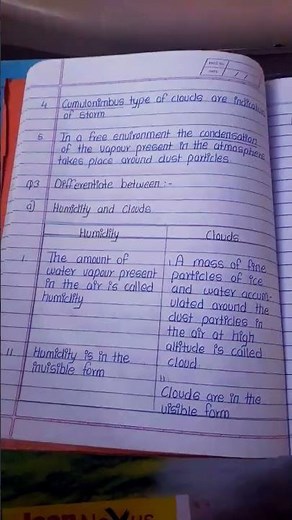 4. Cumulonimbus type of clouds are indicative
of storm
5. In a free environment the condensation
of the vapour present in the atmosphere
takes place around dust particles
Q3 Differentiate between :-
a) Humidity and Clouds
Humidity
Clouds
I. The amount of
water vapour present
in the air is called
humidity
I. A mass of fine
particles of ice
and water accum-
ulated around the
dust particles in
the air at high
altitude is called
cloud.
II. Humidity is in the
invisible form
II.
Clouds are in the
visible form